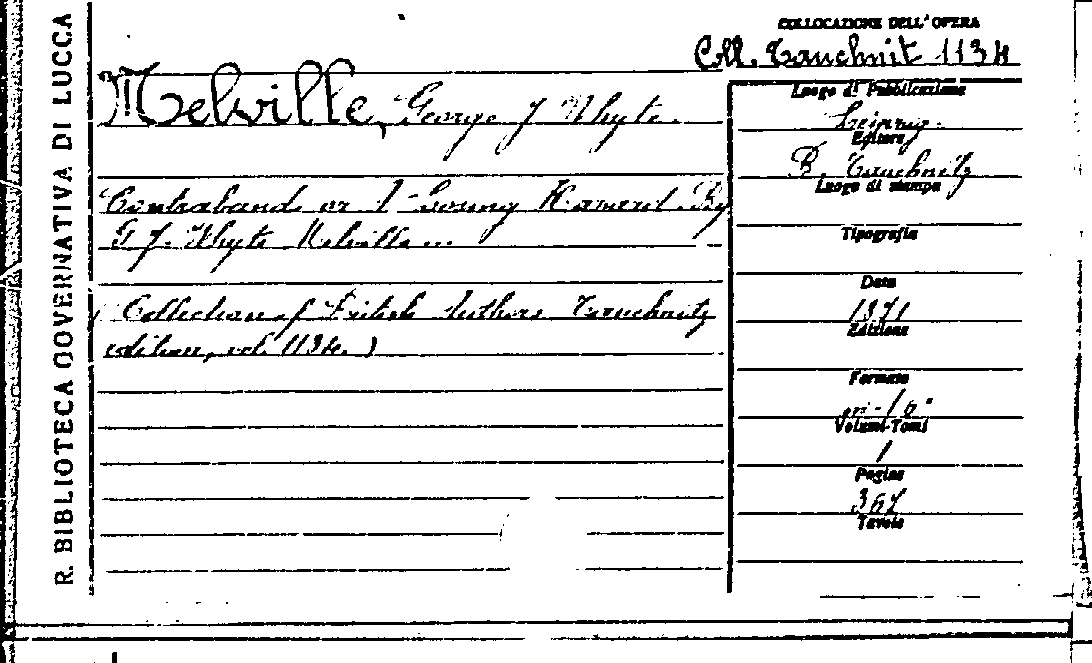 R. BIBLIOTECA GOVERNATIVA DI LUCCA
COLLOCAZIONE DELL'OPERA
Coll. Tauchnit 1134
Melville, George J Whyte.
Contraband or A Losing Hazard. By
G J. Whyte Melville...
(Collection of British Authors Tauchnitz
edition, vol. 1134.)
Luogo di Pubblicazione
Leipzig.
Editore
B. Tauchnitz
Luogo di stampa
Tipografia
Data
1871
Edizione
Formato
in-16°
Volumi-Tomi
1
Pagine
Tavole